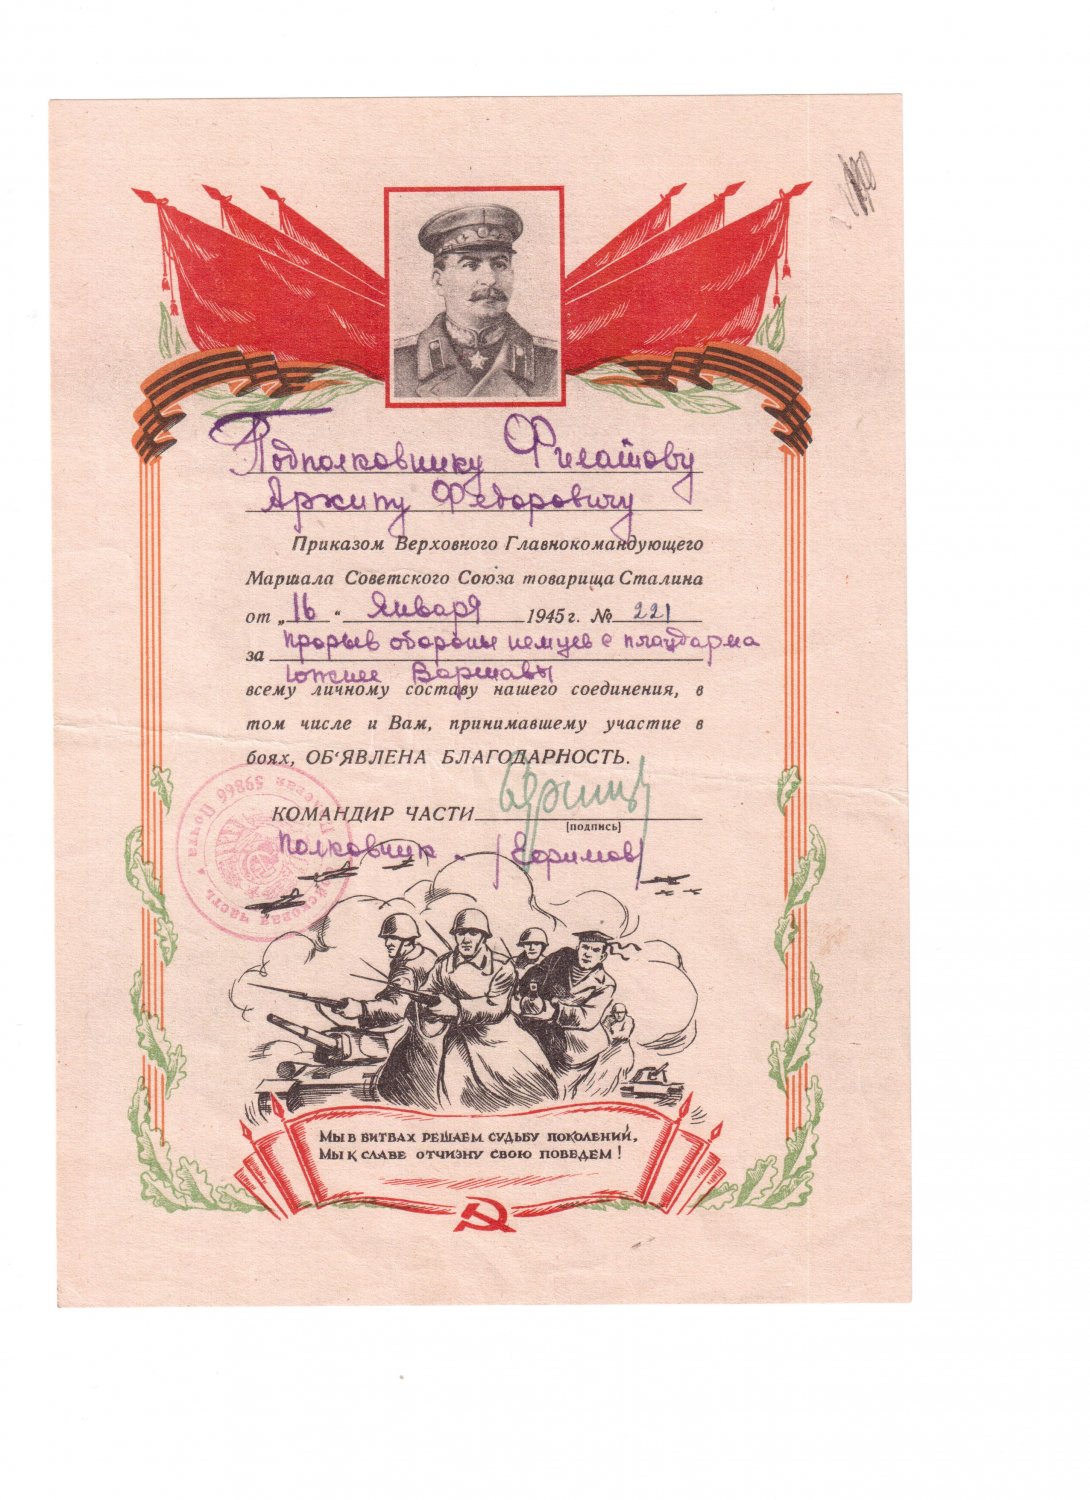 Подполковнику Филатову
Архипу Федоровичу
Приказом Верховного Главнокомандующего
Маршала Советского Союза товарища Сталина
от „16“ Января 1945 г. № 221
за прорыв обороны немцев с плацдарма
южнее Варшавы
всему личному составу нашего соединения, в
том числе и Вам, принимавшему участие в
боях, ОБ‘ЯВЛЕНА БЛАГОДАРНОСТЬ.
КОМАНДИР ЧАСТИ
(подпись)
Полковник /Ефимов/
Полевая Почта 59866
Войсковая часть
Мы в битвах решаем судьбу поколений,
Мы к славе отчизну свою поведем!